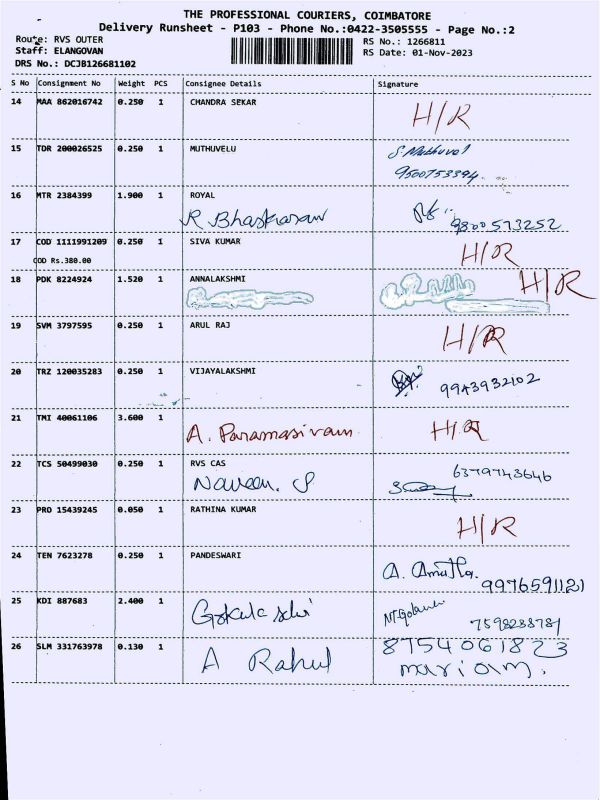 THE PROFESSIONAL COURIERS, COIMBATORE
Delivery Runsheet - P103 - Phone No.:0422-3505555 - Page No.:2
Route: RVS OUTER
RS No.: 1266811
Staff: ELANGOVAN
RS Date: 01-Nov-2023
DRS No.: DCJB126681102
S No Consignment No Weight PCS Consignee Details Signature
14 MAA 862016742 0.250 1 CHANDRA SEKAR
H/R
15 TDR 200026525 0.250 1 MUTHUVELU S. Muthuvel
9500753394
16 MTR 2384399 1.900 1 ROYAL
R Bhaskaran 9800573252
17 COD 1111991209 0.250 1 SIVA KUMAR
H/R
COD Rs.380.00
18 PDK 8224924 1.520 1 ANNALAKSHMI
H/R
19 SVM 3797595 0.250 1 ARUL RAJ
H/R
20 TRZ 120035283 0.250 1 VIJAYALAKSHMI
9943932102
21 TMI 40061106 3.600 1
A. Paramasivam H/R
22 TCS 50499030 0.250 1 RVS CAS
6379743646
Naveen. S
23 PRO 15439245 0.050 1 RATHINA KUMAR
H/R
24 TEN 7623278 0.250 1 PANDESWARI
A. Amutha
9976591121
25 KDI 887683 2.400 1
7598288781
26 SLM 331763978 0.130 1
8754061823
A Rahul mariam.